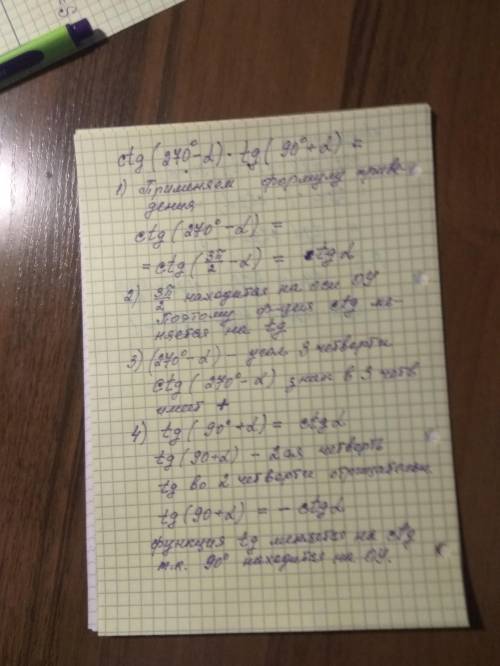 ctg (270°-α) · tg (90°+α) =
1) Применяем формулу приве-
дения
ctg (270° - α) =
= ctg (3π/2 - α) = tg α
2) 3π/2 находится на оси ОУ
Поэтому ф-ция ctg ме-
няется на tg
3) (270° - α) - угол 3 четверти
ctg (270° - α) знак в 3 четв
имеет +
4) tg (90° + α) = ctg α
tg (90+α) - 2ая четверть
tg во 2 четверти отрицательн
tg (90+α) = - ctg α
функция tg меняется на ctg
т.к. 90° находится на ОУ.